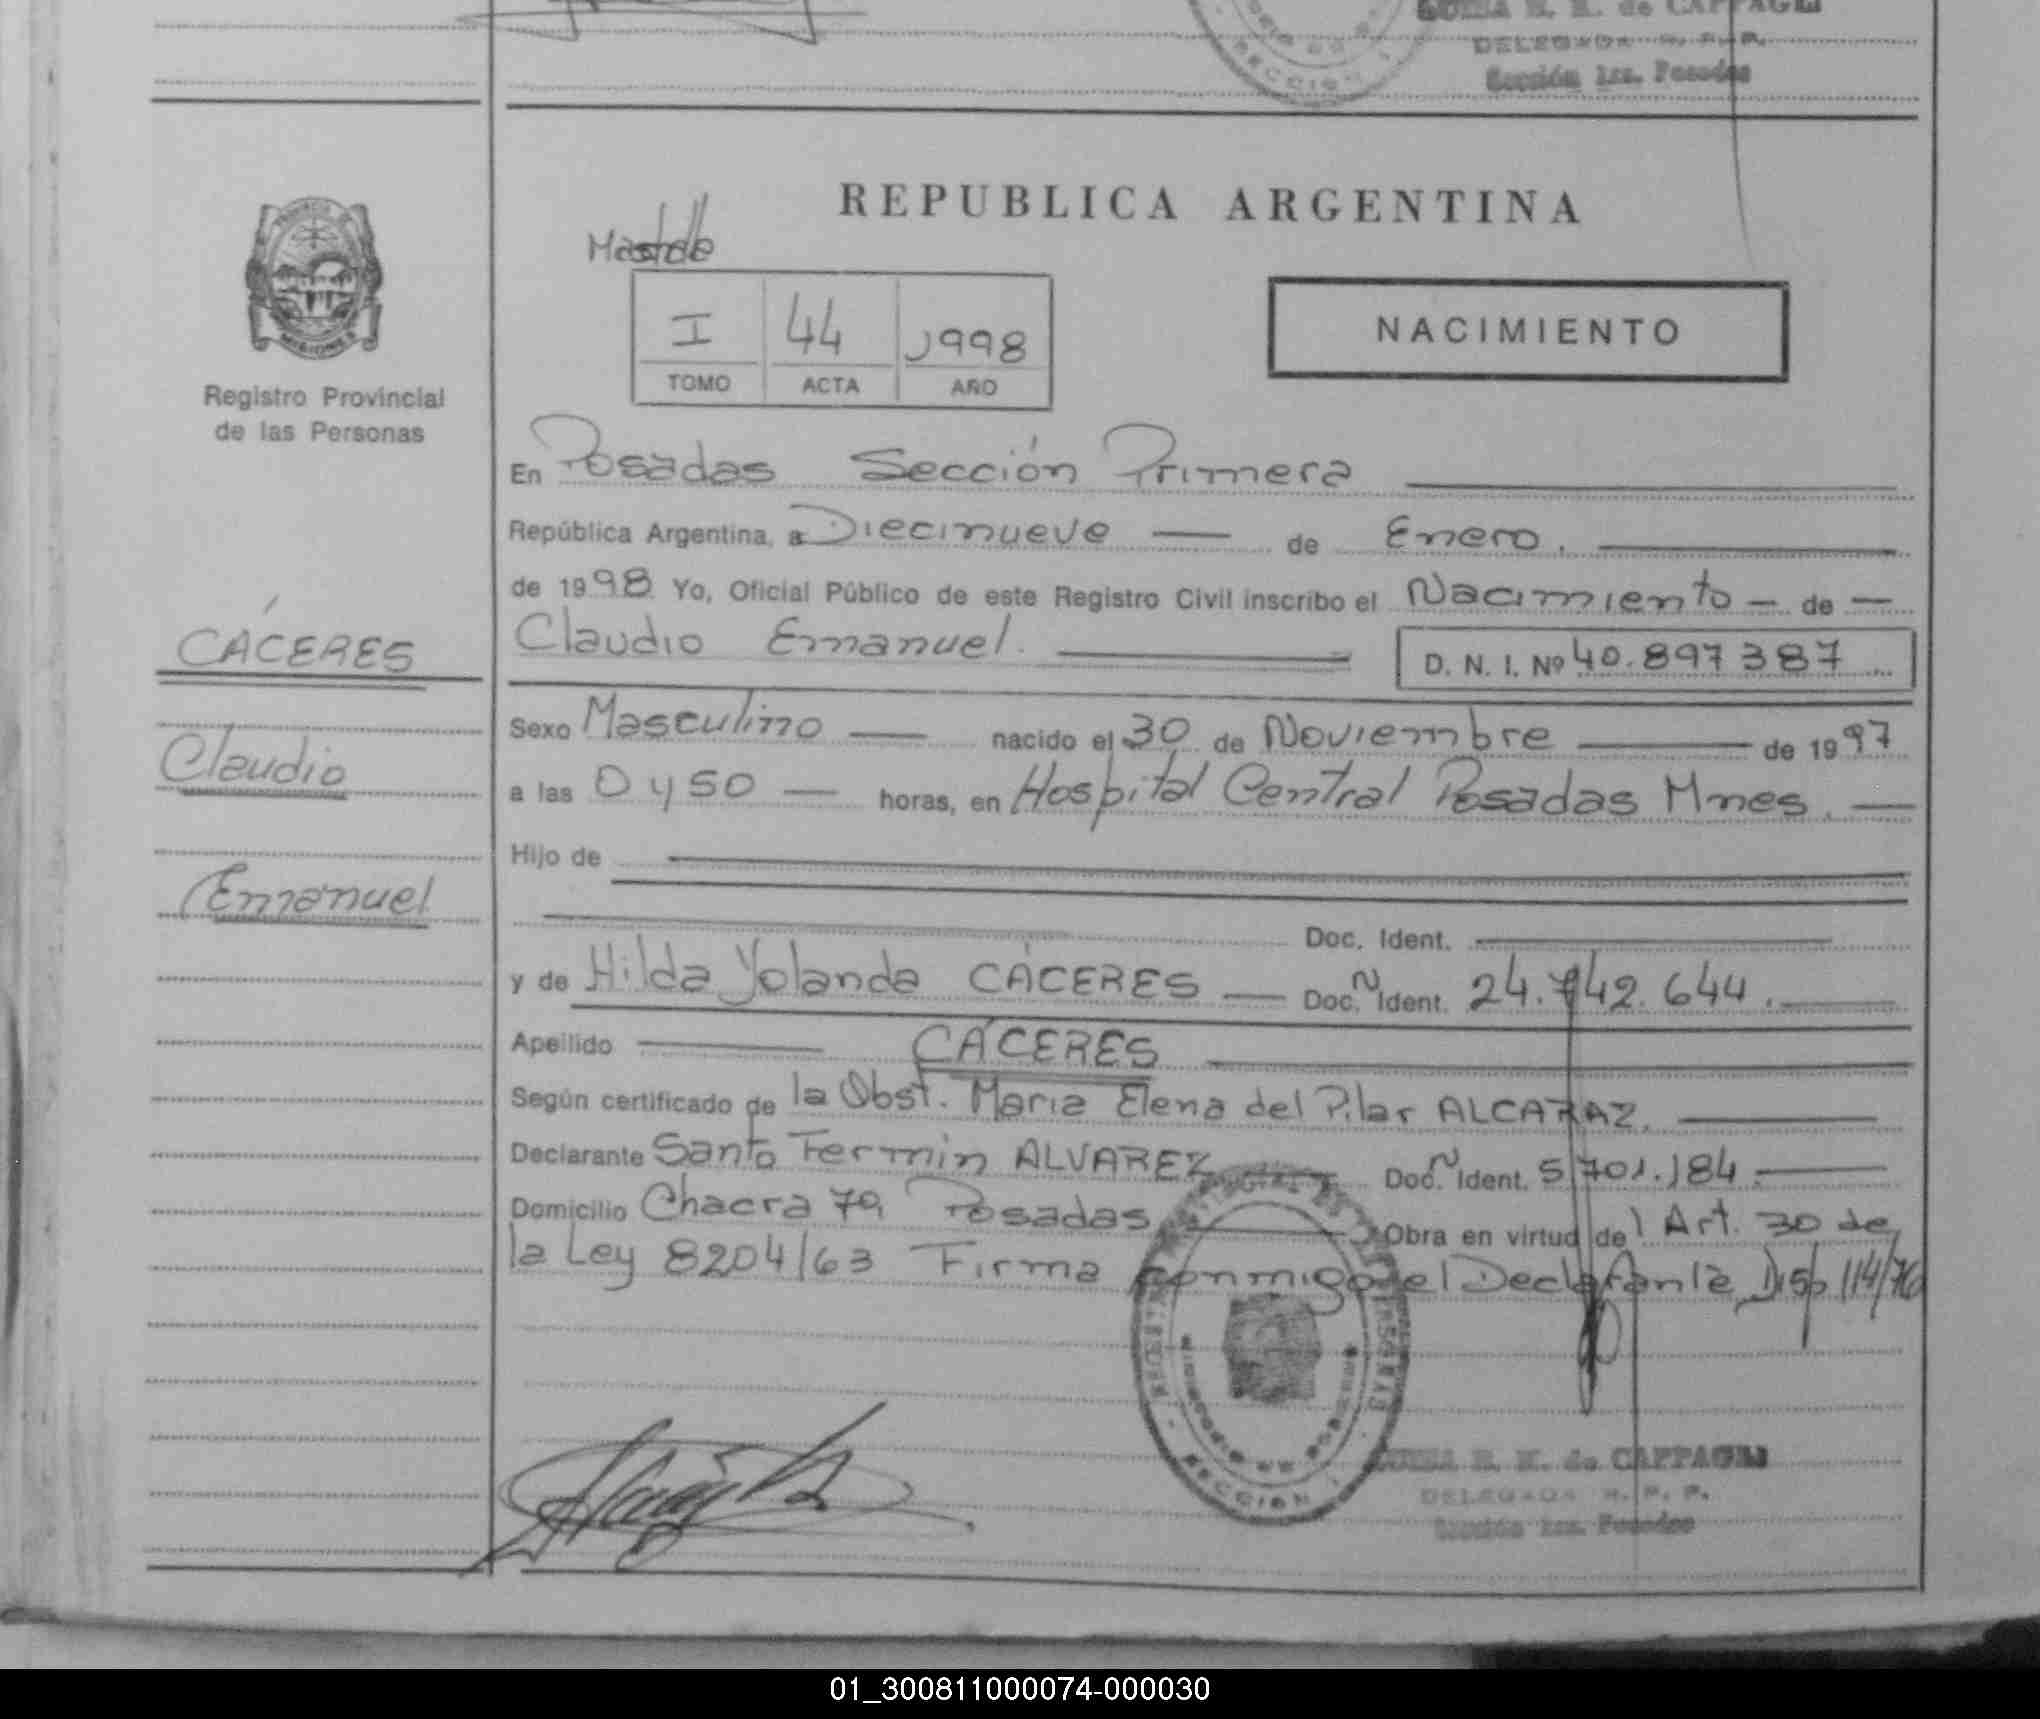 LUISA R. M. de CAPPAGLI
DELEGADA R. P. P.
Sección 1ra. Posadas
SECCION 1
PROVINCIA DE
MISIONES
Registro Provincial
de las Personas
CÁCERES
Claudio
Emanuel
REPUBLICA ARGENTINA
I 44 1998
TOMO ACTA AÑO
NACIMIENTO
En Posadas Sección Primera
República Argentina, a Diecinueve — de Enero.
de 1998 Yo, Oficial Público de este Registro Civil inscribo el Nacimiento — de —
Claudio Emanuel. D. N. I. Nº 40.897387
Sexo Masculino — nacido el 30 de Noviembre — de 1997
a las 0 y 50 — horas, en Hospital Central Posadas Mnes. —
Hijo de
Doc. Ident.
y de Hilda Yolanda CÁCERES — Doc. N Ident. 24.742.644.
Apellido — CÁCERES
Según certificado de la Obst. Maria Elena del Pilar ALCARAZ.
Declarante Santo Fermin ALVAREZ Doc. N Ident. 5701.184.
Domicilio Chacra 70, Posadas Obra en virtud del Art. 30 de
la Ley 8204/63 Firma conmigo el Declarante Disp 114/76
SECCION 1
LUISA R. M. de CAPPAGLI
DELEGADA R. P. P.
Sección 1ra. Posadas
01_300811000074-000030